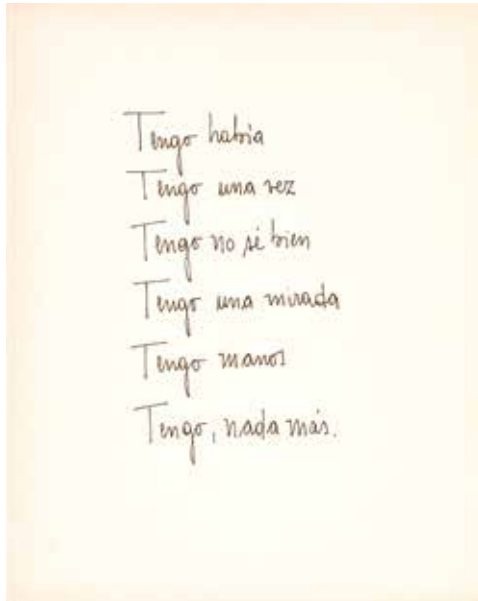 Tengo había
Tengo una vez
Tengo no sé bien
Tengo una mirada
Tengo manos
Tengo, nada más.